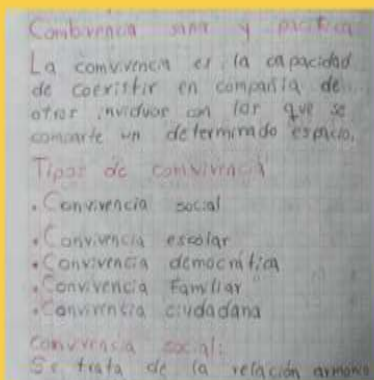 Combivencia sana y pacifica
La comvivencia es la capacidad
de coexistir en compañia de
otros inviduos con los que se
comparte un determinado espacio.
Tipos de convivencia
• Convivencia social
• Convivencia escolar
• Convivencia democrática
• Convivencia Familiar
• Convivencia ciudadana
Convivencia social:
Se trata de la relación armonio